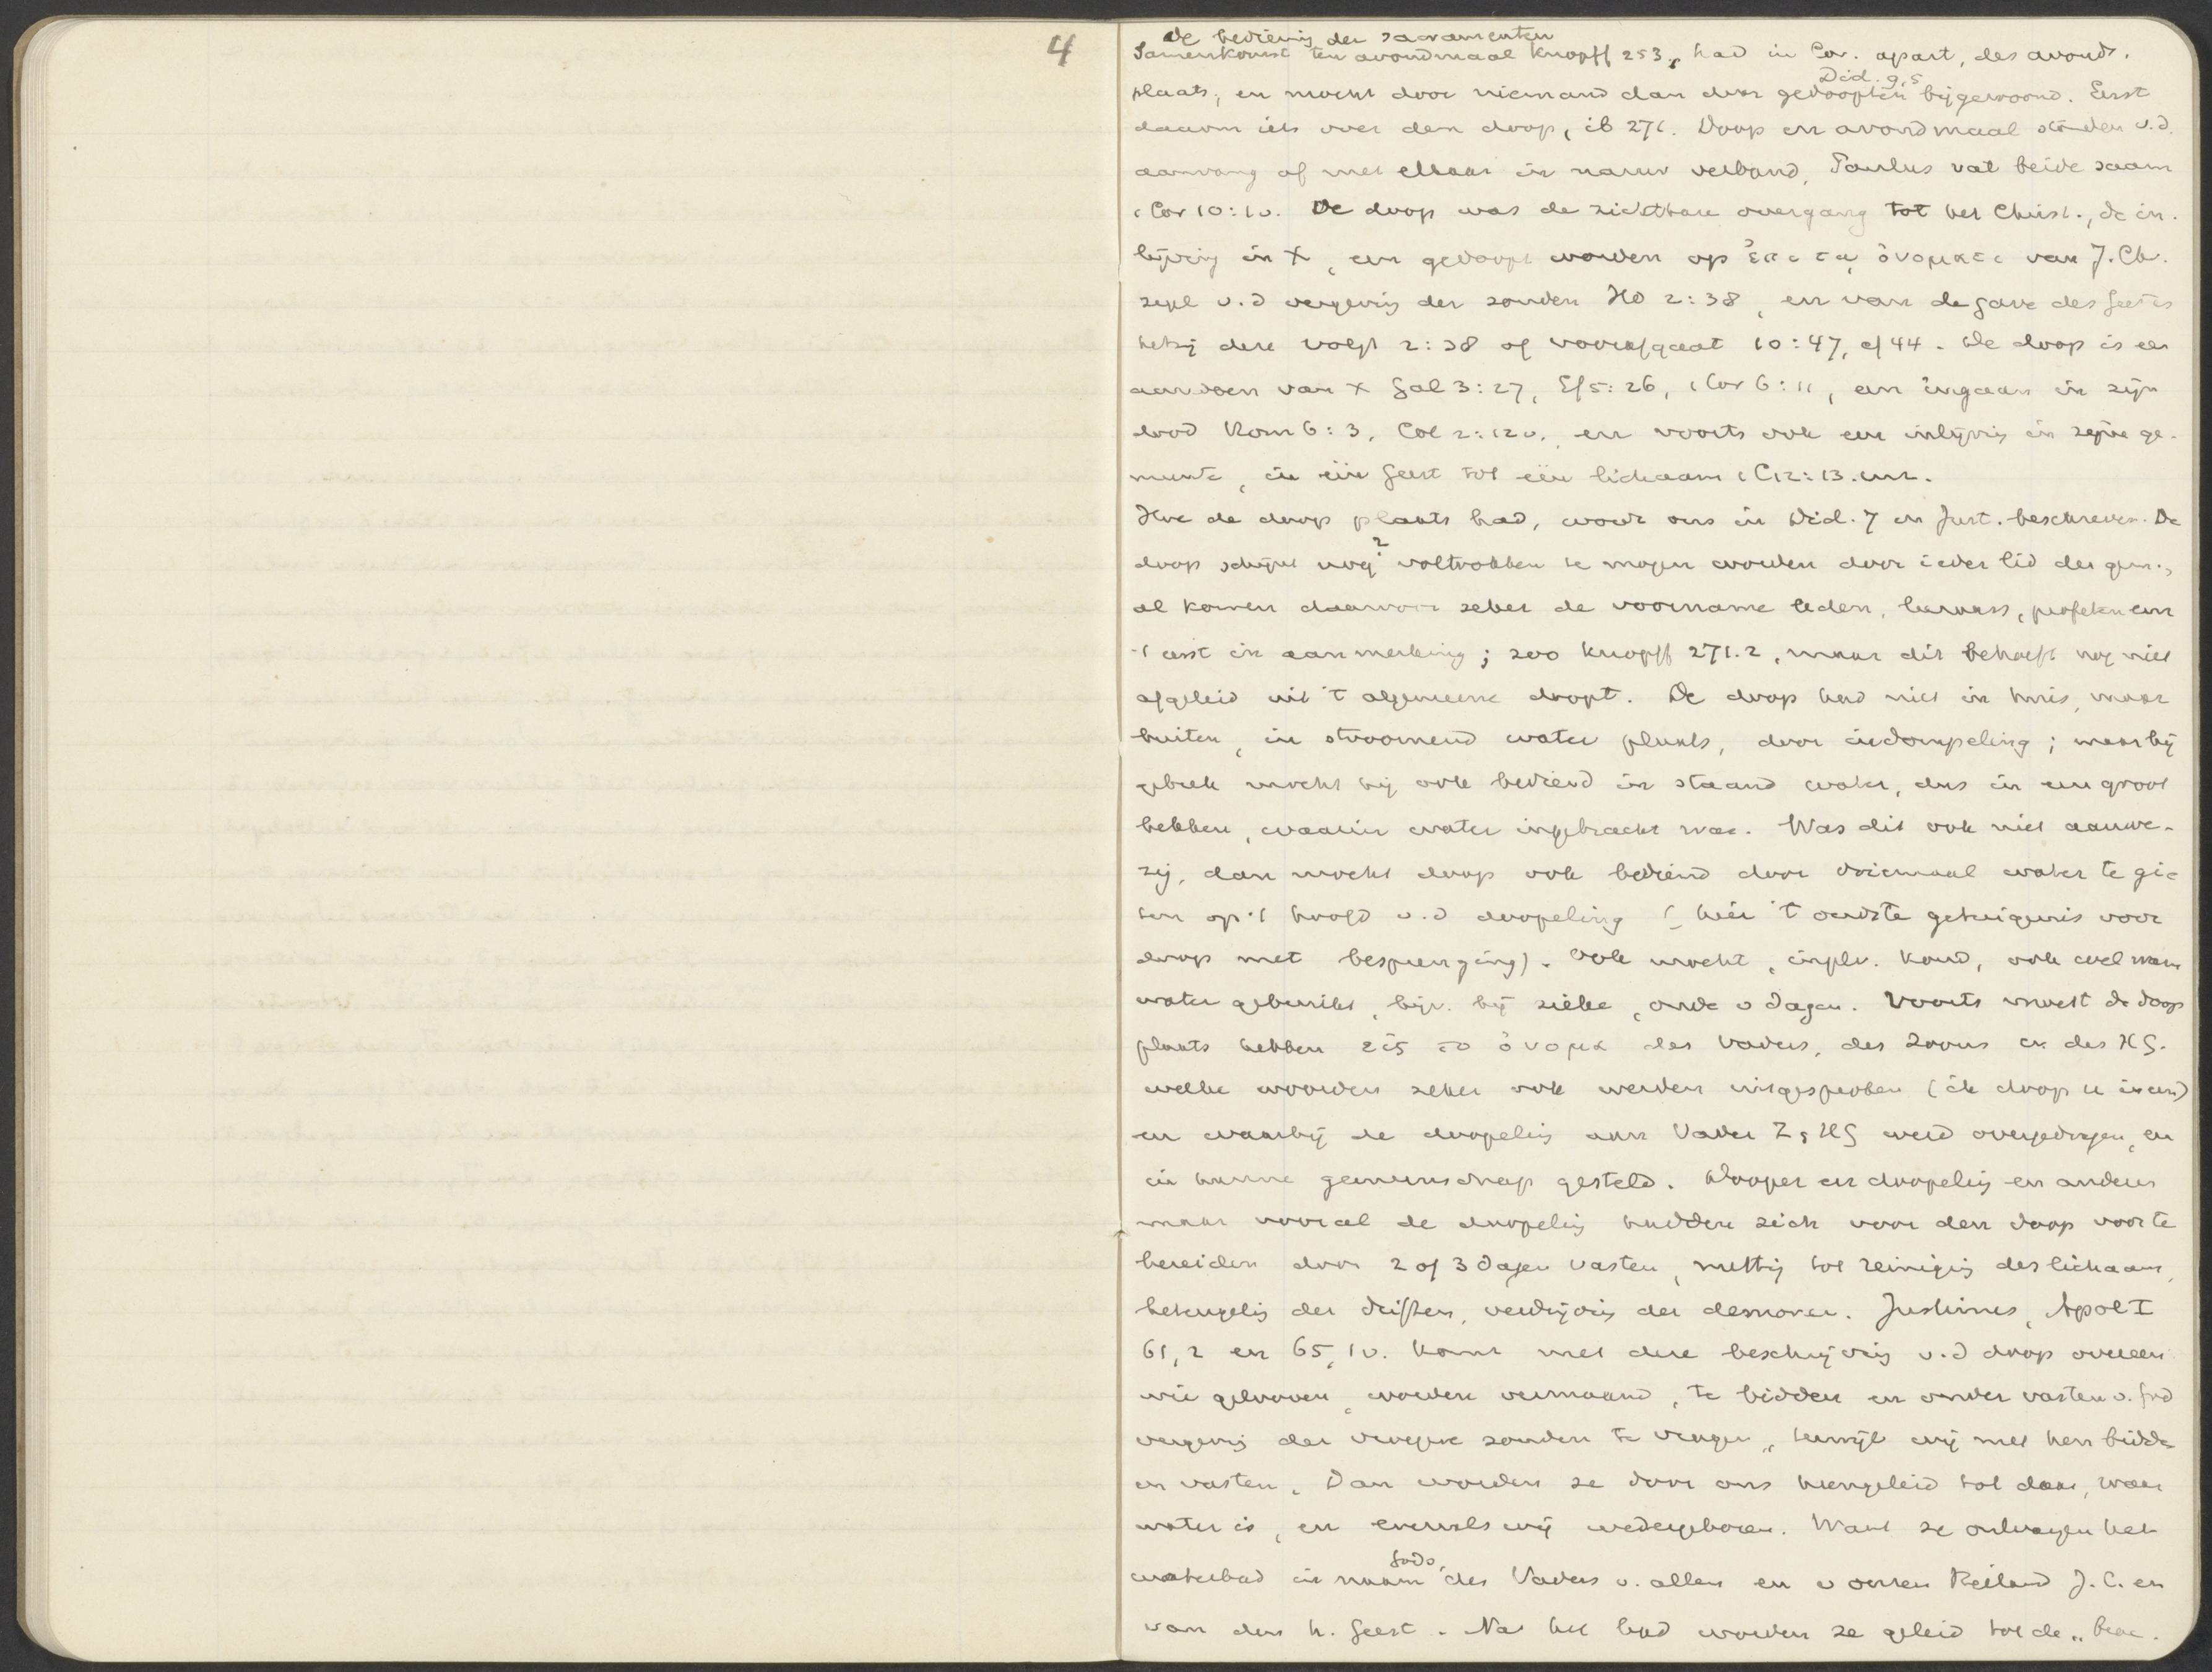 4
De bediening der sacramenten
Samenkomst ten avondmaal Knopff 253, had in Cor. apart, des avonds.
Did. 9,5
plaats, en mocht door niemand dan door gedoopten bijgewoond. Eerst
daarom iets over den doop, ib 271. Doop en avondmaal stonden v.d.
aanvang af met elkaar in nauw verband, Paulus vat beide saam
1 Cor 10:1v. De doop was de zichtbare overgang tot het Christ., de in-
lijving in X, een gedoopt worden op ἐπι τῳ ὀνοματι van J. Ch.
zegel v.d vergeving der zonden Hd 2:38, en van de gave des Geestes
hetzij deze volgt 2:38 of voorafgaat 10:47, cf 44. De doop is een
aandoen van X Gal 3:27, Ef 5:26, 1 Cor 6:11, een ingaan in zijn
dood Rom 6:3, Col 2:12v. en voorts ook een inlijving in zijne ge-
meente, in één Geest tot één lichaam 1 C 12:13. enz.
Hoe de doop plaats had, wordt ons in Did. 7 en Just. beschreven. De
2
doop schijnt nog? voltrokken te mogen worden door ieder lid der gem.,
al komen daarvoor zeker de voorname leden, leeraars, profeten enz
't eerst in aanmerking; zoo Knopff 271.2, maar dit behoeft nog niet
afgeleid uit 't algemeene doopt. De doop had niet in huis, maar
buiten, in stroomend water plaats, door indompeling; maar bij
gebrek mocht hij ook bediend in staand water, dus in een groot
bekken, waarin water ingebracht was. Was dit ook niet aanwe-
zig, dan mocht doop ook bediend door driemaal water te gie
ten op 't hoofd v.d doopeling (hier 't oudste getuigenis voor
doop met besprenging). Ook mocht, inplv. koud, ook wel warm
water gebruikt, bijv. bij zieke, oude v dagen. Voorts moest de doop
plaats hebben εἰς το ὀνομα des Vaders, des Zoons en des HG.
welke woorden zeker ook werden uitgesproken (ik doop u in enz)
en waarbij de doopeling aan Vader Z, HG werd overgedragen, en
in hunne gemeenschap gesteld. Dooper en doopeling en anderen
maar vooral de doopeling hadden zich voor den doop voor te
bereiden door 2 of 3 dagen vasten, nuttig tot reiniging des lichaams,
beteugeling der driften, verdrijving der demonen. Justinus, Apol I
61,2 en 65,1v. komt met deze beschrijving v.d doop overeen
wie gelooven, worden vermaand, te bidden en onder vasten v. God
vergeving der vroegere zonden te vragen, terwijl wij met hen bidden
en vasten. Dan worden ze door ons heengeleid tot daar, waar
water is, en evenals wij wedergeboren. Want ze ontvangen het
Gods,
waterbad in naam des Vaders v. allen en v onzen Heiland J. C. en
van den h. Geest. Na het bad worden ze geleid tot de „broe-